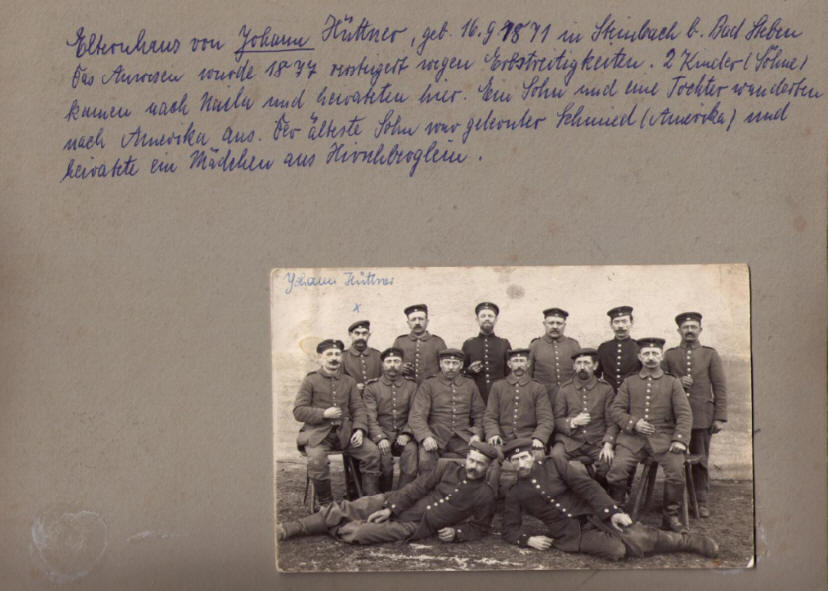 Elternhaus von Johann Hüttner, geb. 16.9.1871 in Steinbach b. Bad Steben
Das Anwesen wurde 1877 versteigert wegen Erbstreitigkeiten. 2 Kinder (Söhne)
kamen nach Naila und heirateten hier. Ein Sohn und eine Tochter wanderten
nach Amerika aus. Der älteste Sohn war gelernter Schmied (Amerika) und
heiratete ein Mädchen aus Hirschberglein.
Johann Hüttner
x